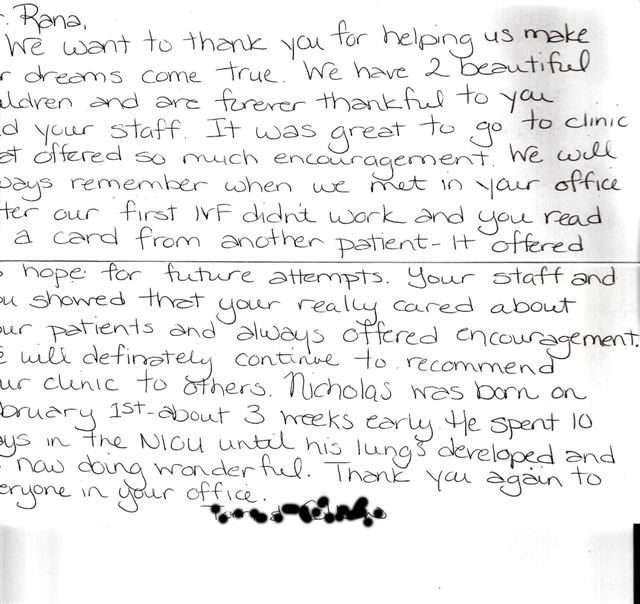 . Rana,
We want to thank you for helping us make
r dreams come true. We have 2 beautiful
ldren and are forever thankful to you
d your staff. It was great to go to clinic
at offered so much encouragement. We will
ays remember when we met in your office
ter our first IVF didn't work and you read
a card from another patient - It offered
s hope for future attempts. Your staff and
ou showed that your really cared about
ur patients and always offered encouragement.
e will definately continue to recommend
ur clinic to others. Nicholas was born on
bruary 1st - about 3 weeks early. He spent 10
ys in the NICU until his lungs developed and
now doing wonderful. Thank you again to
eryone in your office.